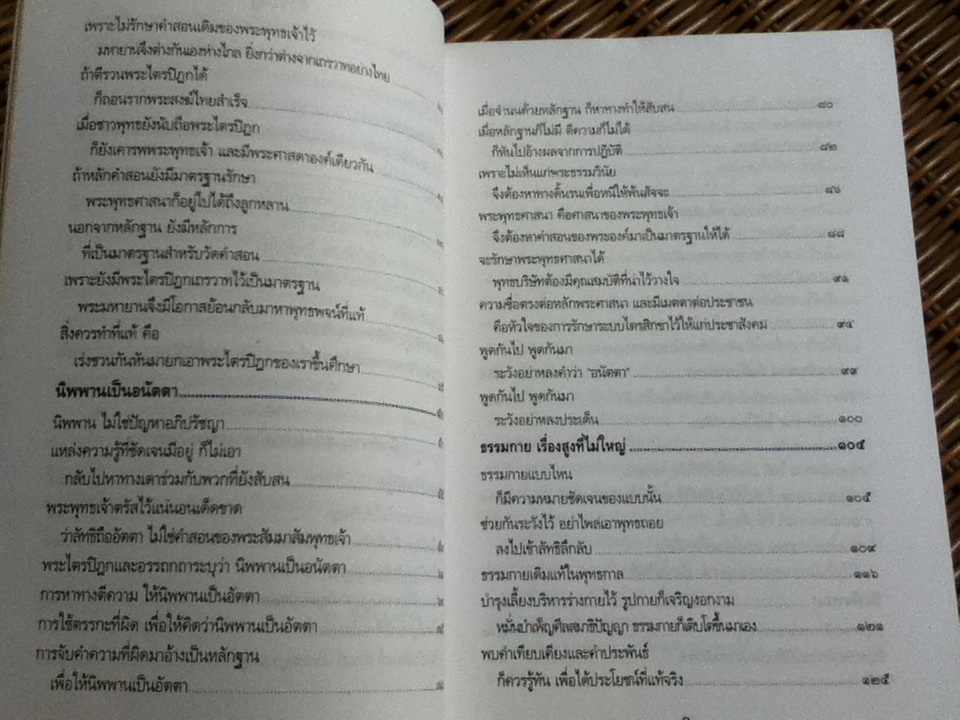 เพราะไม่รักษาคำสอนเดิมของพระพุทธเจ้าไว้
มหายานจึงต่างกันเองห่างไกล ยิ่งกว่าต่างจากเถรวาทอย่างไทย
ถ้าตีรวนพระไตรปิฎกได้
ก็ถอนรากพระสงฆ์ไทยสำเร็จ
เมื่อชาวพุทธยังนับถือพระไตรปิฎก
ก็ยังเคารพพระพุทธเจ้า และมีพระศาสดาองค์เดียวกัน
ถ้าหลักคำสอนยังมีมาตรฐานรักษา
พระพุทธศาสนาก็อยู่ไปได้ถึงลูกหลาน
นอกจากหลักฐาน ยังมีหลักการ
ที่เป็นมาตรฐานสำหรับวัดคำสอน
เพราะยังมีพระไตรปิฎกเถรวาทไว้เป็นมาตรฐาน
พระมหายานจึงมีโอกาสย้อนกลับมาหาพุทธพจน์ที่แท้
สิ่งควรทำที่แท้ คือ
เร่งชวนกันหันมายกเอาพระไตรปิฎกของเราขึ้นศึกษา
นิพพานเป็นอนัตตา
นิพพาน ไม่ใช่ปัญหาอภิปรัชญา
แหล่งความรู้ที่ชัดเจนมีอยู่ ก็ไม่เอา
กลับไปหาทางเดาร่วมกับพวกที่ยังสับสน
พระพุทธเจ้าตรัสไว้แน่นอนเด็ดขาด
ว่าลัทธิถืออัตตา ไม่ใช่คำสอนของพระสัมมาสัมพุทธเจ้า
พระไตรปิฎกและอรรถกถาระบุว่า นิพพานเป็นอนัตตา
การหาทางตีความ ให้นิพพานเป็นอัตตา
การใช้ตรรกะที่ผิด เพื่อให้คิดว่านิพพานเป็นอัตตา
การจับคำความที่ผิดมาอ้างเป็นหลักฐาน
เพื่อให้นิพพานเป็นอัตตา
เมื่อจำนนด้วยหลักฐาน ก็หาทางทำให้สับสน ๘๐
เมื่อหลักฐานก็ไม่มี ตีความก็ไม่ได้
ก็หันไปอ้างผลจากการปฏิบัติ ๘๒
เพราะไม่เห็นแก่พระธรรมวินัย
จึงต้องหาทางดิ้นรนเพื่อหนีให้พ้นสัจจะ ๘๖
พระพุทธศาสนา คือศาสนาของพระพุทธเจ้า
จึงต้องหาคำสอนของพระองค์มาเป็นมาตรฐานให้ได้ ๘๘
จะรักษาพระพุทธศาสนาได้
พุทธบริษัทต้องมีคุณสมบัติที่น่าไว้วางใจ ๙๑
ความซื่อตรงต่อหลักพระศาสนา และมีเมตตาต่อประชาชน
คือหัวใจของการรักษาระบบไตรสิกขาไว้ให้แก่ประชาสังคม ๙๔
พูดกันไป พูดกันมา
ระวังอย่าหลงคำว่า "อนัตตา" ๙๙
พูดกันไป พูดกันมา
ระวังอย่าหลงประเด็น ๑๐๐
ธรรมกาย เรื่องสูงที่ไม่ใหญ่ ๑๐๕
ธรรมกายแบบไหน
ก็มีความหมายชัดเจนของแบบนั้น ๑๐๕
ช่วยกันระวังไว้ อย่าไพล่เอาพุทธถอย
ลงไปเข้าลัทธิลึกลับ ๑๐๙
ธรรมกายเดิมแท้ในพุทธกาล ๑๑๖
บำรุงเลี้ยงบริหารร่างกายไว้ รูปกายก็เจริญงอกงาม
หมั่นบำเพ็ญศีลสมาธิปัญญา ธรรมกายก็เติบโตขึ้นมาเอง ๑๒๑
พบคำเทียบเคียงและคำประพันธ์
ก็ควรรู้ทัน เพื่อได้ประโยชน์ที่แท้จริง ๑๒๕